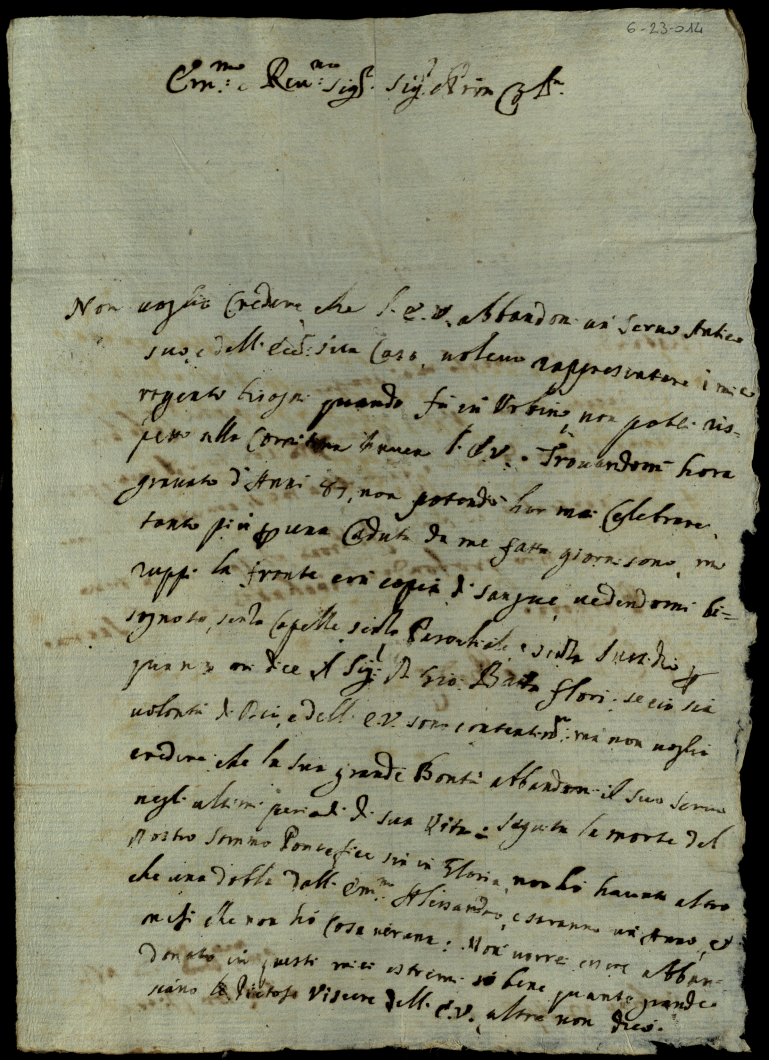 6-23-014
Em.mo e Reu.mo Sig.r Sig.r P.ron
Non uoglio Credere che l'E.V. abbandoni un Seruo Antico
suo, e dell' Ecc.sa Casa, uoleuo rappresentare i miei
urgenti bisogni quando fù in Urbino, non potei ris-
petto alla l'E.V. Trouandomi hora
grauato d'Anni 87, non potendo hor mai Celebrare,
tanto più una Caduta da me fatta giorni sono, mi
ruppi la fronte con copia di sangue, uedendomi bi-
sognoso, senza Capelle senza Parochiale, e senza Sussidio
quanto mi dice il Sig.r D. Gio. Batta Flori: se ciò sia
uolontà di Dio, e dell' E.V. sono contento: ma non uoglio
credere che la sua grande Bontà abbandoni il suo Seruo
negli ultimi periodi di sua Vita: Seguita la morte del
Nostro Sommo Pontefice sia in Gloria, non hò hauuto altro
che una dobla dall' Em.mo Alessandro, e saranno un Anno, e
mesi che non hò Cosa ueruna: Non uorrei essere abban-
donato in questi miei estremi sò bene quanto grande
siano le Pietose Viscere dell' E.V. altro non dico.